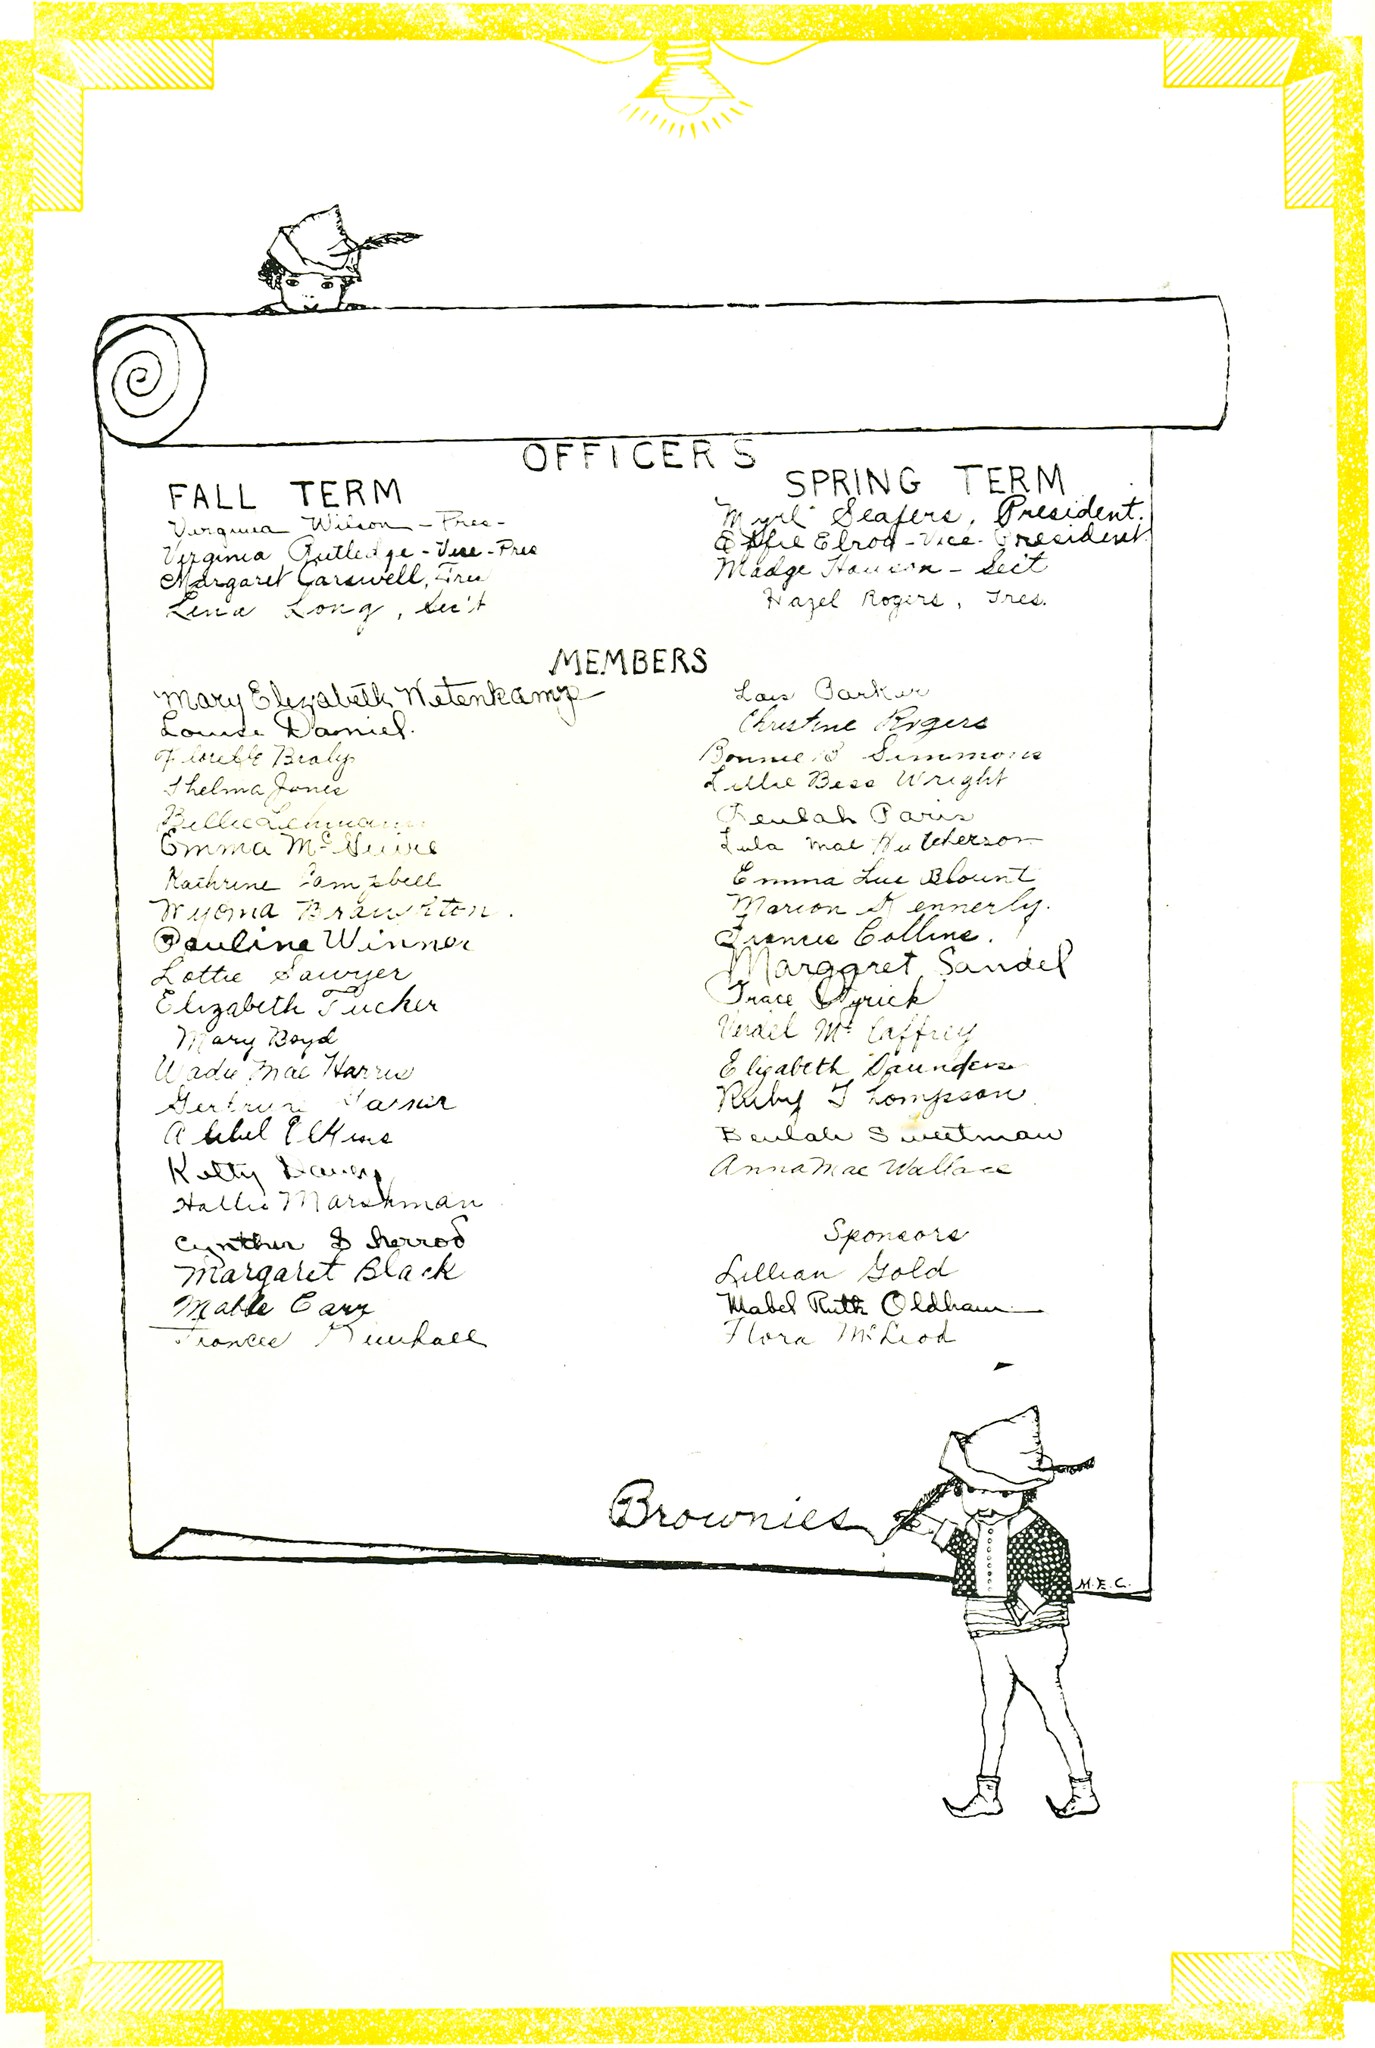 OFFICERS
FALL TERM
Virginia Wilson - Pres-
Virginia Rutledge - Vice-Pres
Margaret Carswell, Tres
Lena Long, Sec't
SPRING TERM
Myrl Seafers, President.
Effie Elrod - Vice-President
Madge - Sec't
Hazel Rogers, Tres.
MEMBERS
Mary Elizabeth Wetenkamp
Louise Daniel.
Braly
Thelma Jones
Billie Lehmann
Emma McGuire
Kathrine Campbell
Wyoma Branghton.
Pauline Winner
Lottie Sawyer
Elizabeth Tucker
Mary Boyd
Wadie Mae Harris
Gertrude
Elkins
Ketty Davey
Hallie Marshman
Cynther Sherrod
Margaret Black
Mable Carr
Frances Kimball
Lois Barker
Christine Rogers
Bonnie B Simmons
Lillie Bess Wright
Beulah Paris
Lula Mae Hutcherson
Emma Lue Blount
Marion Kennerly.
Frances Collins.
Marggret Sandel
Grace Myrick
Verdel McCaffrey
Elizabeth Saunders
Ruby Thompson
Beulah Sweetman
Anna Mae Wallace
Sponsors
Lillian Gold
Mabel Ruth Oldham
Flora McLeod
Brownies
M.E.C.